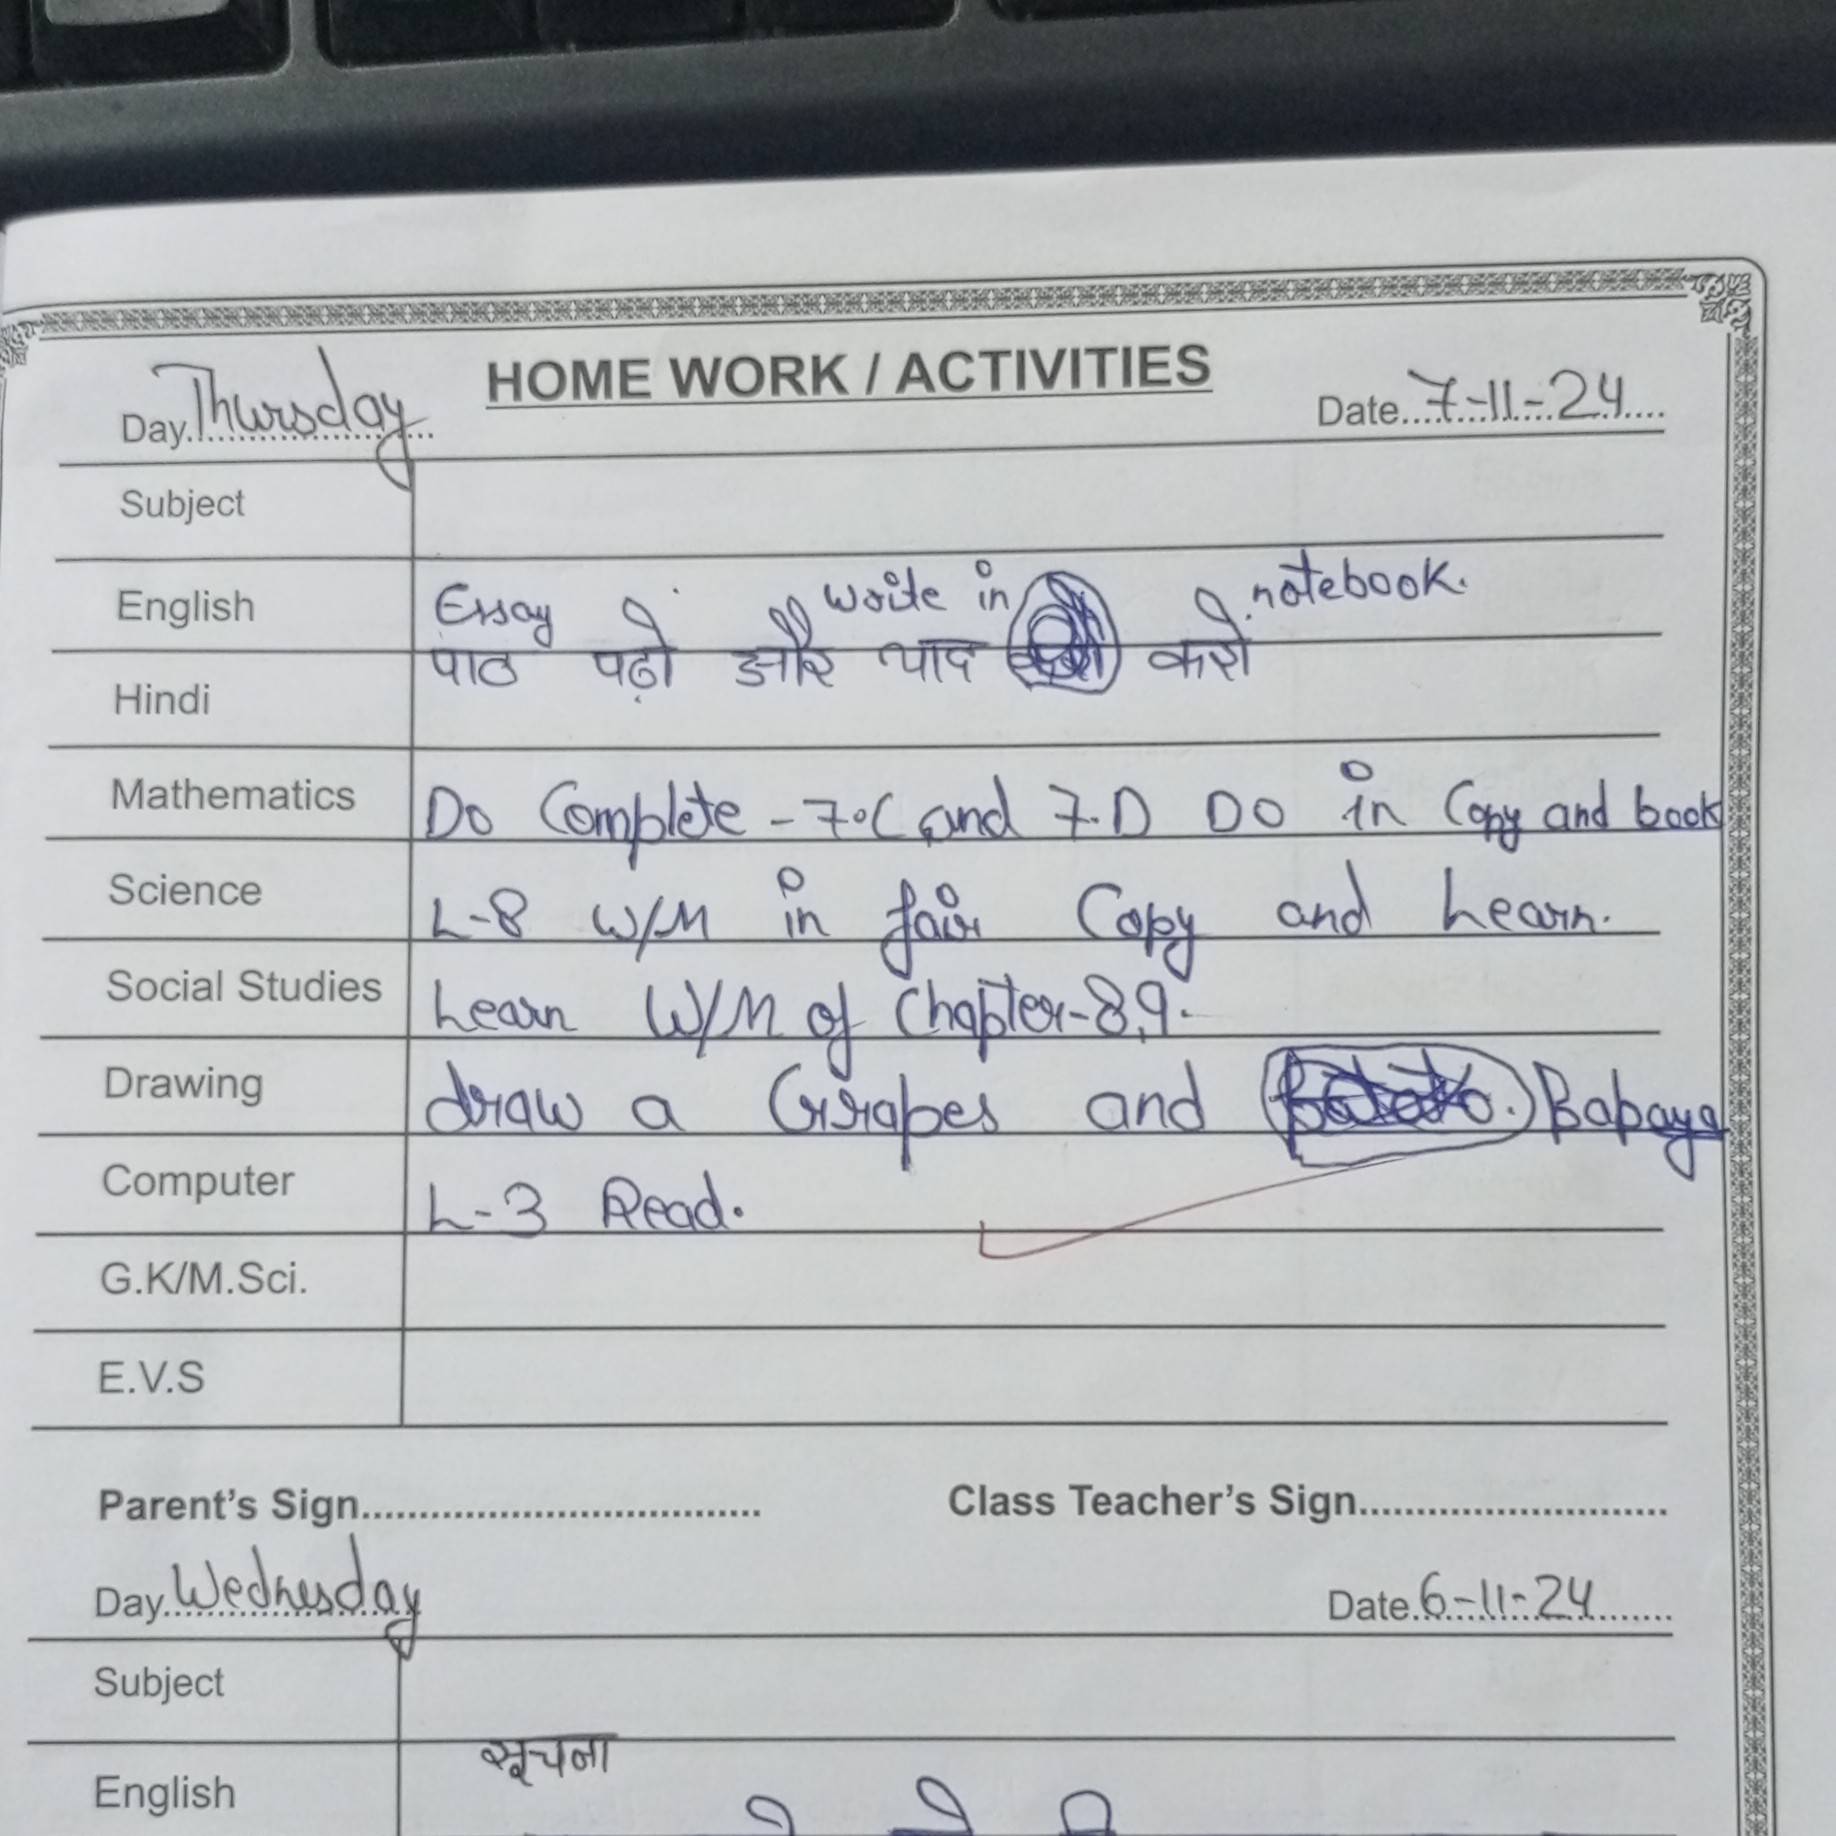 HOME WORK / ACTIVITIES
Day Thursday Date 7-11-24
Subject
English Essay write in notebook.
Hindi पाठ पढ़ो और याद करो
Mathematics Do Complete - 7.C and 7.D Do in Copy and book
Science L-8 W/M in fair Copy and Learn.
Social Studies Learn W/M of Chapter-8,9.
Drawing draw a Grapes and Bapaya
Computer L-3 Read.
G.K/M.Sci.
E.V.S
Parent's Sign Class Teacher's Sign
Day Wednesday Date 6-11-24
Subject
सूचना
English